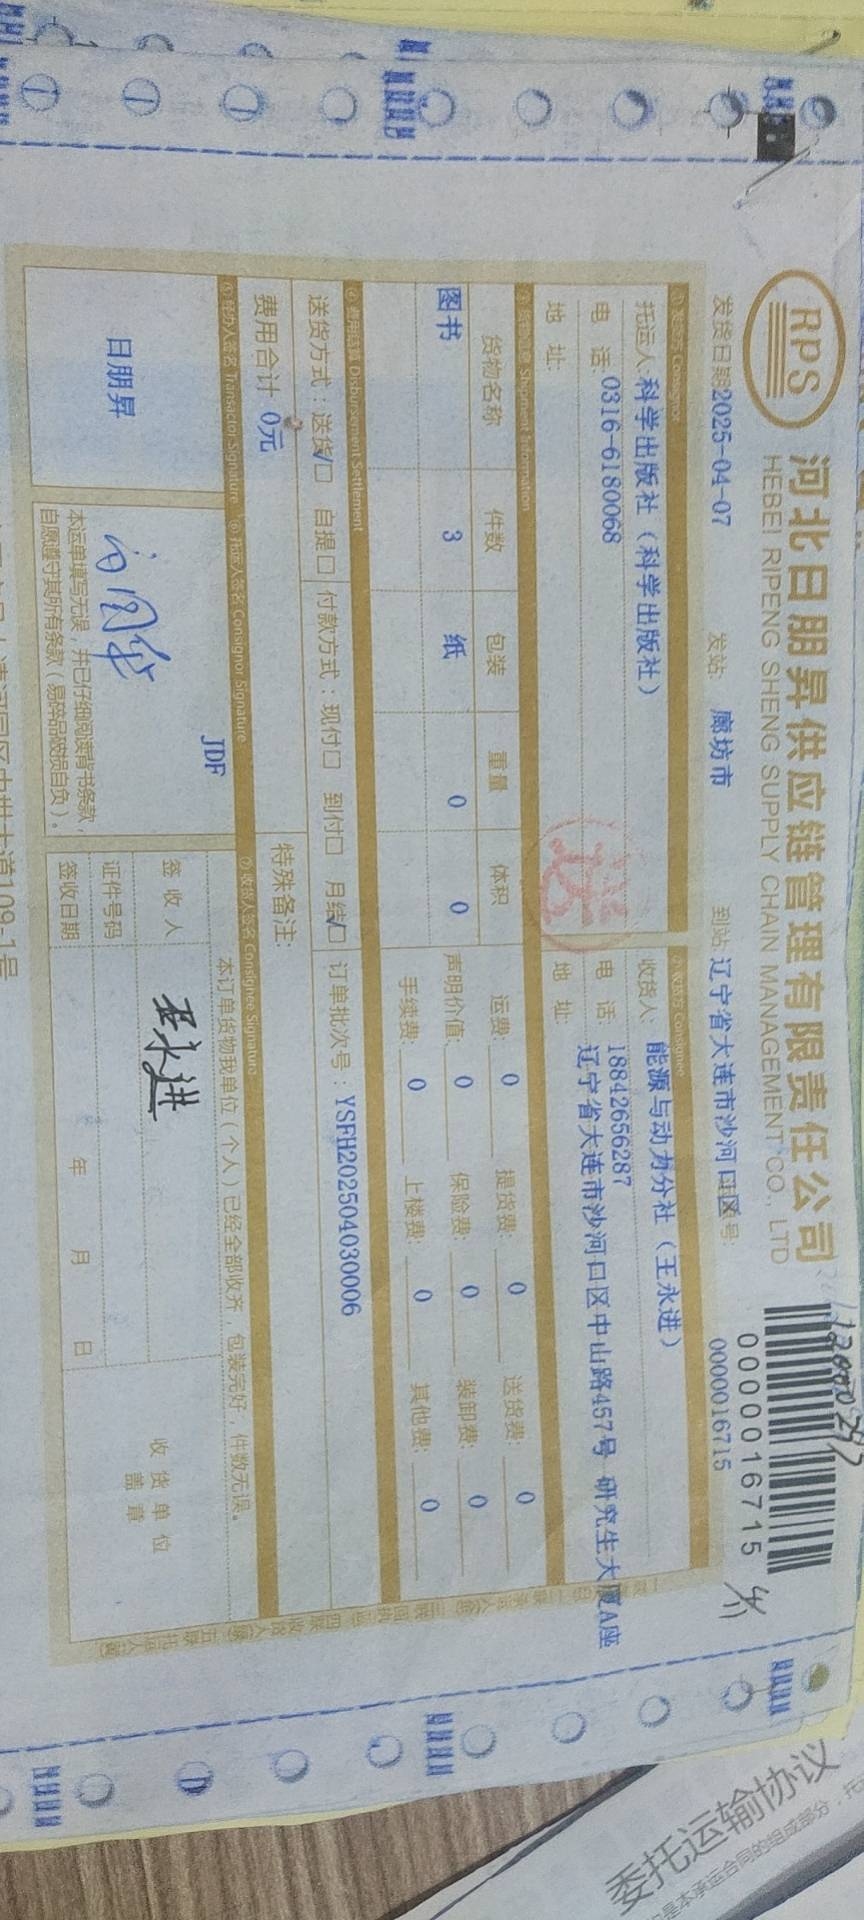 RPS
河北日朋昇供应链管理有限责任公司
HEBEI RIPENG SHENG SUPPLY CHAIN MANAGEMENT CO., LTD
0000016715
发货日期2025-04-07 发站: 廊坊市 到站:辽宁省大连市沙河口区 号: 0000016715
① 发货方 Consignor ② 收货方 Consignee
托运人:科学出版社（科学出版社） 收货人: 能源与动力分社（王永进）
电 话: 0316-6180068 电 话: 18842656287
地 址: 地 址: 辽宁省大连市沙河口区中山路457号 研究生大厦A座
③ 货物信息 Shipment Information
货物名称 件数 包装 重量 体积 运费: 0 提货费: 0 送货费: 0
图书 3 纸 0 0 声明价值: 0 保险费: 0 装卸费: 0
手续费: 0 上楼费: 0 其他费: 0
④ 费用结算 Disbursement Settlement
送货方式：送货☑ 自提□ 付款方式：现付□ 到付□ 月结☑ 订单批次号：YSFH202504030006
费用合计 0元 特殊备注:
⑤ 经办人签名 Transactor Signature ⑥ 托运人签名 Consignor Signature ⑦ 收货人签名 Consignee Signature
JDF
本订单货物我单位（个人）已经全部收齐，包装完好，件数无误。
日朋昇
签 收 人 王永进
收货单位
盖 章
证件号码
本运单填写无误，并已仔细阅读背书条款，
自愿遵守其所有条款（易碎品破损自负）。
签收日期 年 月 日
道109-1号
委托运输协议
是本承运合同的组成部分，托